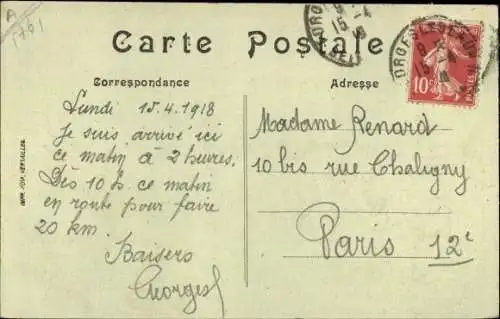 A
1761
Carte Postale
Correspondance
Adresse
Lundi 15.4.1918
Je suis arrivé ici
ce matin à 2 heures.
Dès 10 h. ce matin
en route pour faire
20 km.
Baisers
Georges
Madame Renard
10 bis rue Chaligny
Paris 12e
10c
IMP. VERSAILLES